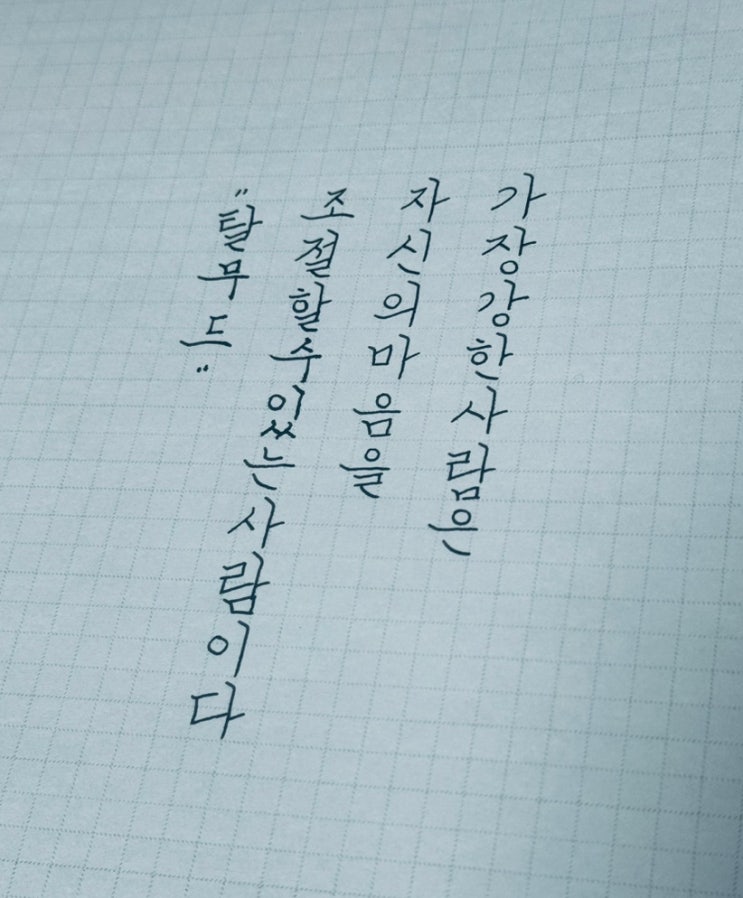 가장강한사람은
자신의마음을
조절할수있는사람이다
"탈무드"